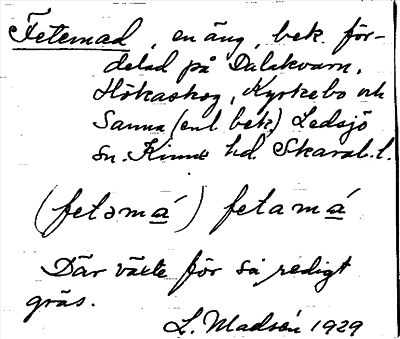 Fetemad, en äng, bek. för-
delad på Dalakvarn,
Hökaskog, Kyrkebo och
Sanna (enl. bek.) Ledsjö
sn. Kinne hd. Skarab. l.
(fetəmá) fetamá
Där växte för så redigt
gräs.
L. Madsén 1929